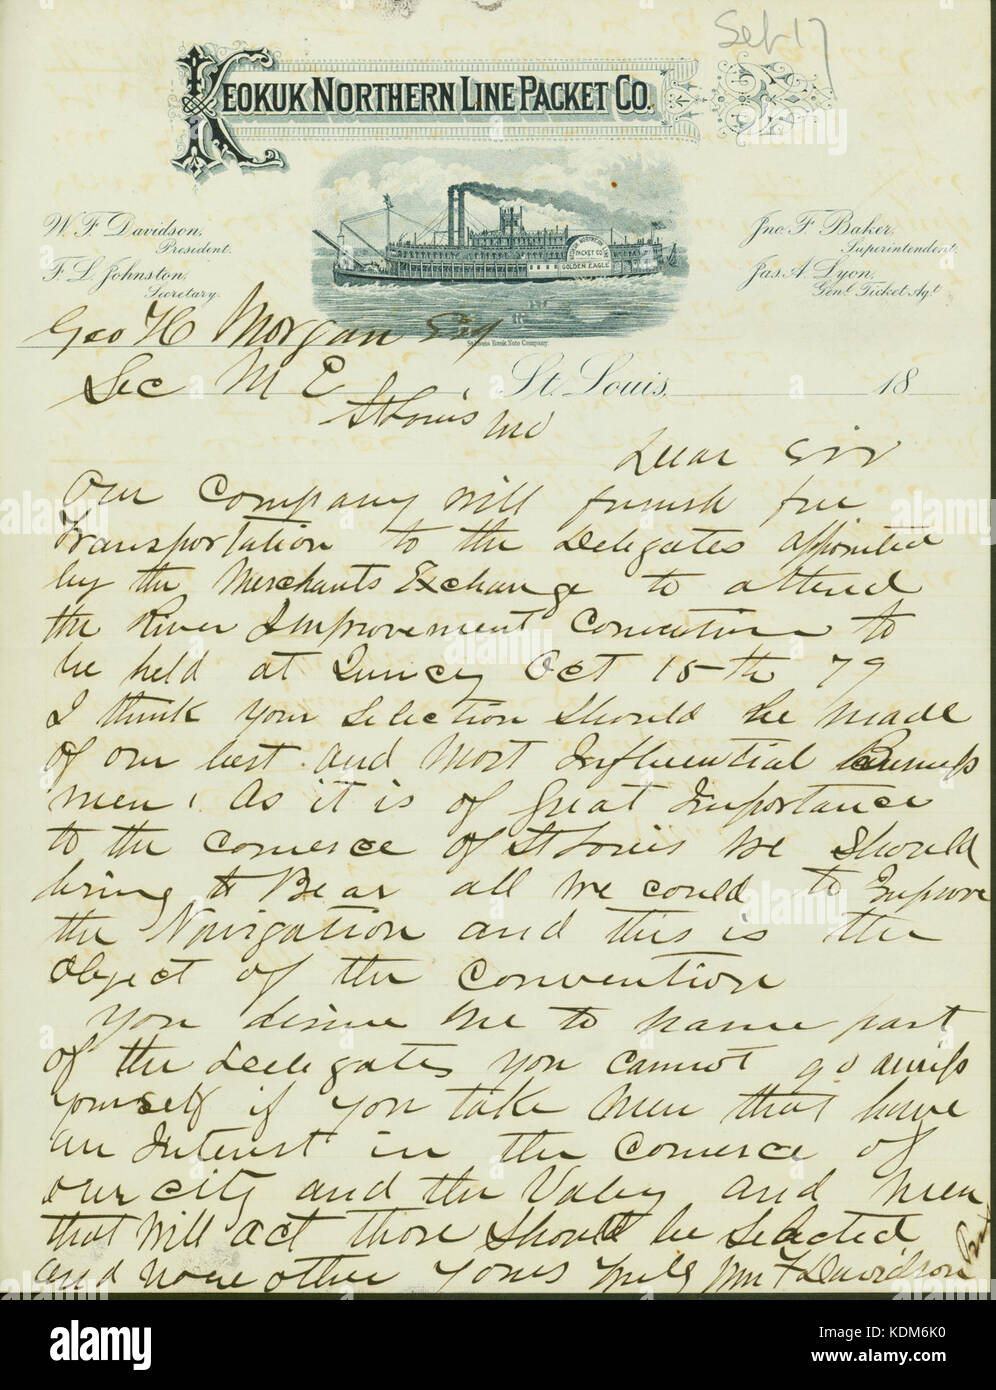 Sep 17
KEOKUK NORTHERN LINE PACKET CO.
W. F. Davidson,
President.
F. L. Johnston,
Secretary.
Jno. F. Baker,
Superintendent.
Jas. A. Lyon,
Genl. Ticket Agt.
PACKET CO.
GOLDEN EAGLE
St. Louis Bank Note Company
Geo H Morgan Esq
Sec M E
St. Louis, 18
St Louis Mo
Dear Sir
Our Company will furnish free
Transportation to the Delegates appointed
by the Merchants Exchange to attend
the River Improvement Convention to
be held at Quincy Oct 15th 79
I think your Selection Should be made
of our best and most Influential Business
men, As it is of great Importance
to the comerce of St Louis We Should
bring to Bear all We could to Improve
the Navigation and this is the
object of the convention
You desire me to name part
of the Delegates you cannot go amiss
yourself if you take men that have
an Interest in the comerce of
our city and the Valey and men
that Will act those Should be Selected
and none other Yours Truly Wm F Davidson
Prest
alamy
Image ID: KDM6K0
www.alamy.com